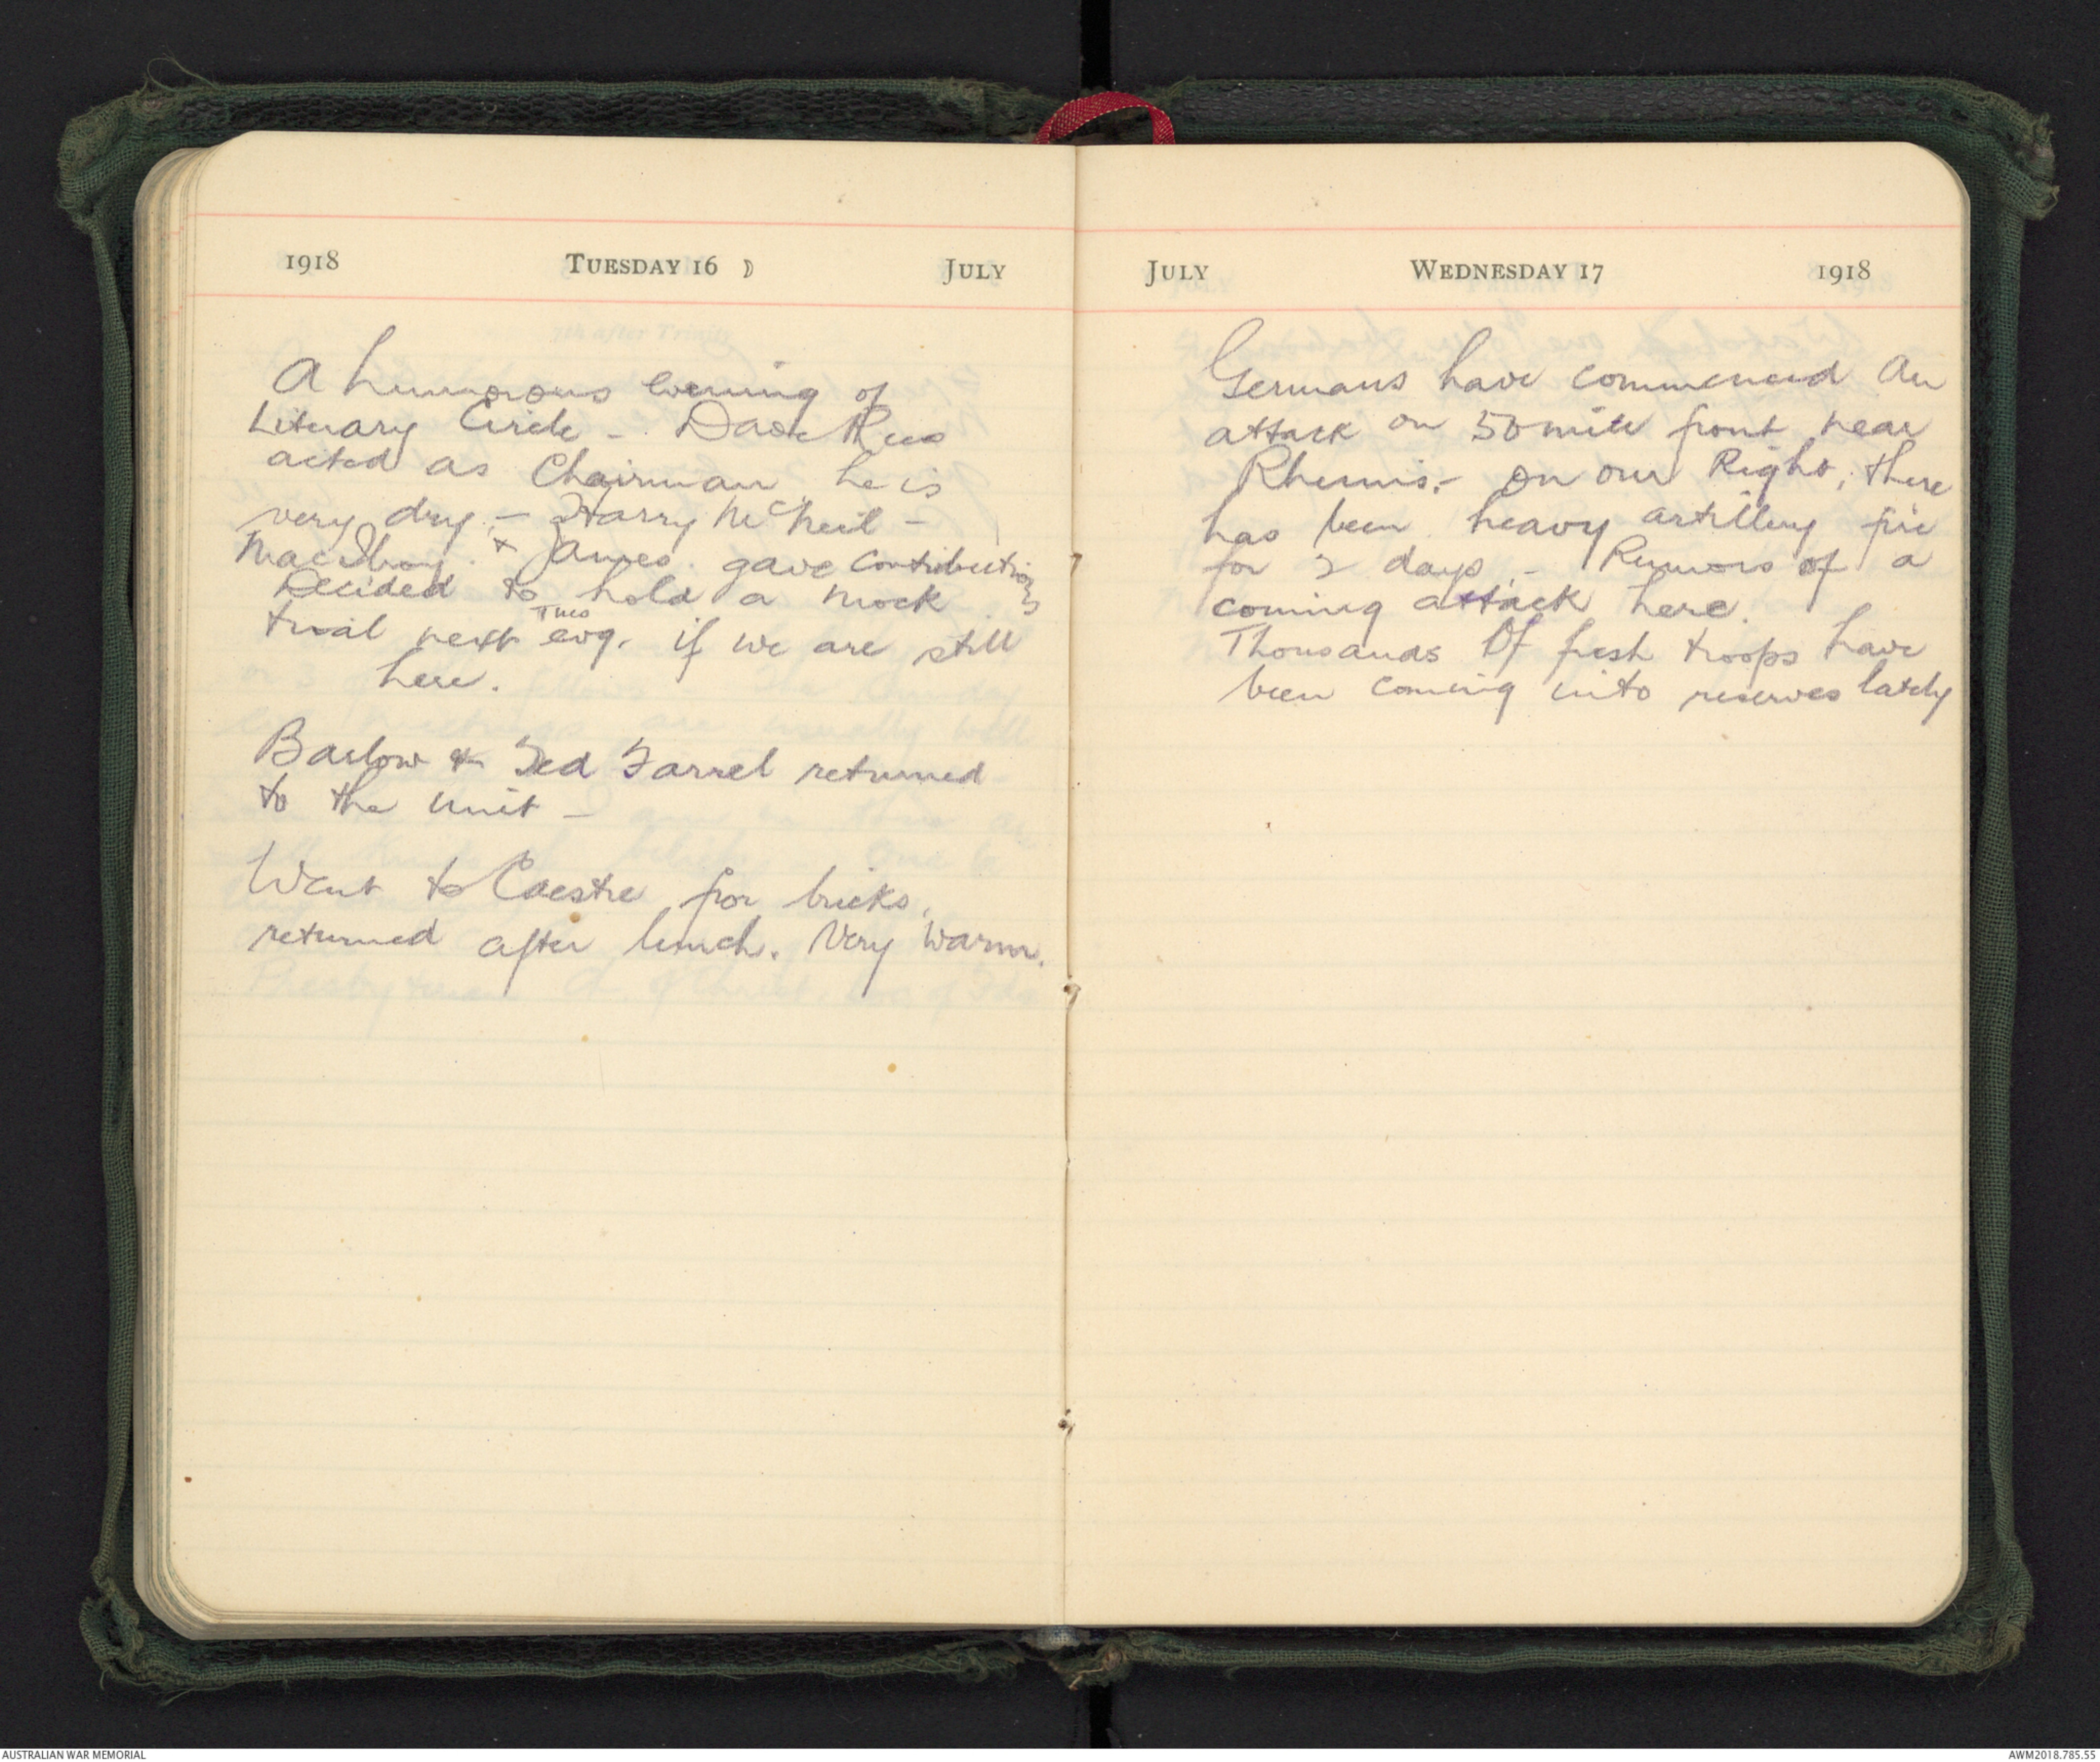 1918 TUESDAY 16 ☽ JULY
A humorous evening of
Literary Circle - Dave Rees
acted as Chairman he is
very dry - Harry McNeil -
& James gave contributions
Decided to hold a mock
trial next Tues evg. if we are still
here.
Barlow & Ted Farrel returned
to the unit -
Went to Caestre for bricks,
returned after lunch. Very warm.
JULY WEDNESDAY 17 1918
Germans have commenced an
attack on 50 mile front near
Rheims - On our Right, there
has been heavy artillery fire
for 2 days, - Rumors of a
coming attack here.
Thousands Of fresh troops have
been coming into reserves lately
AUSTRALIAN WAR MEMORIAL
AWM2018.785.55